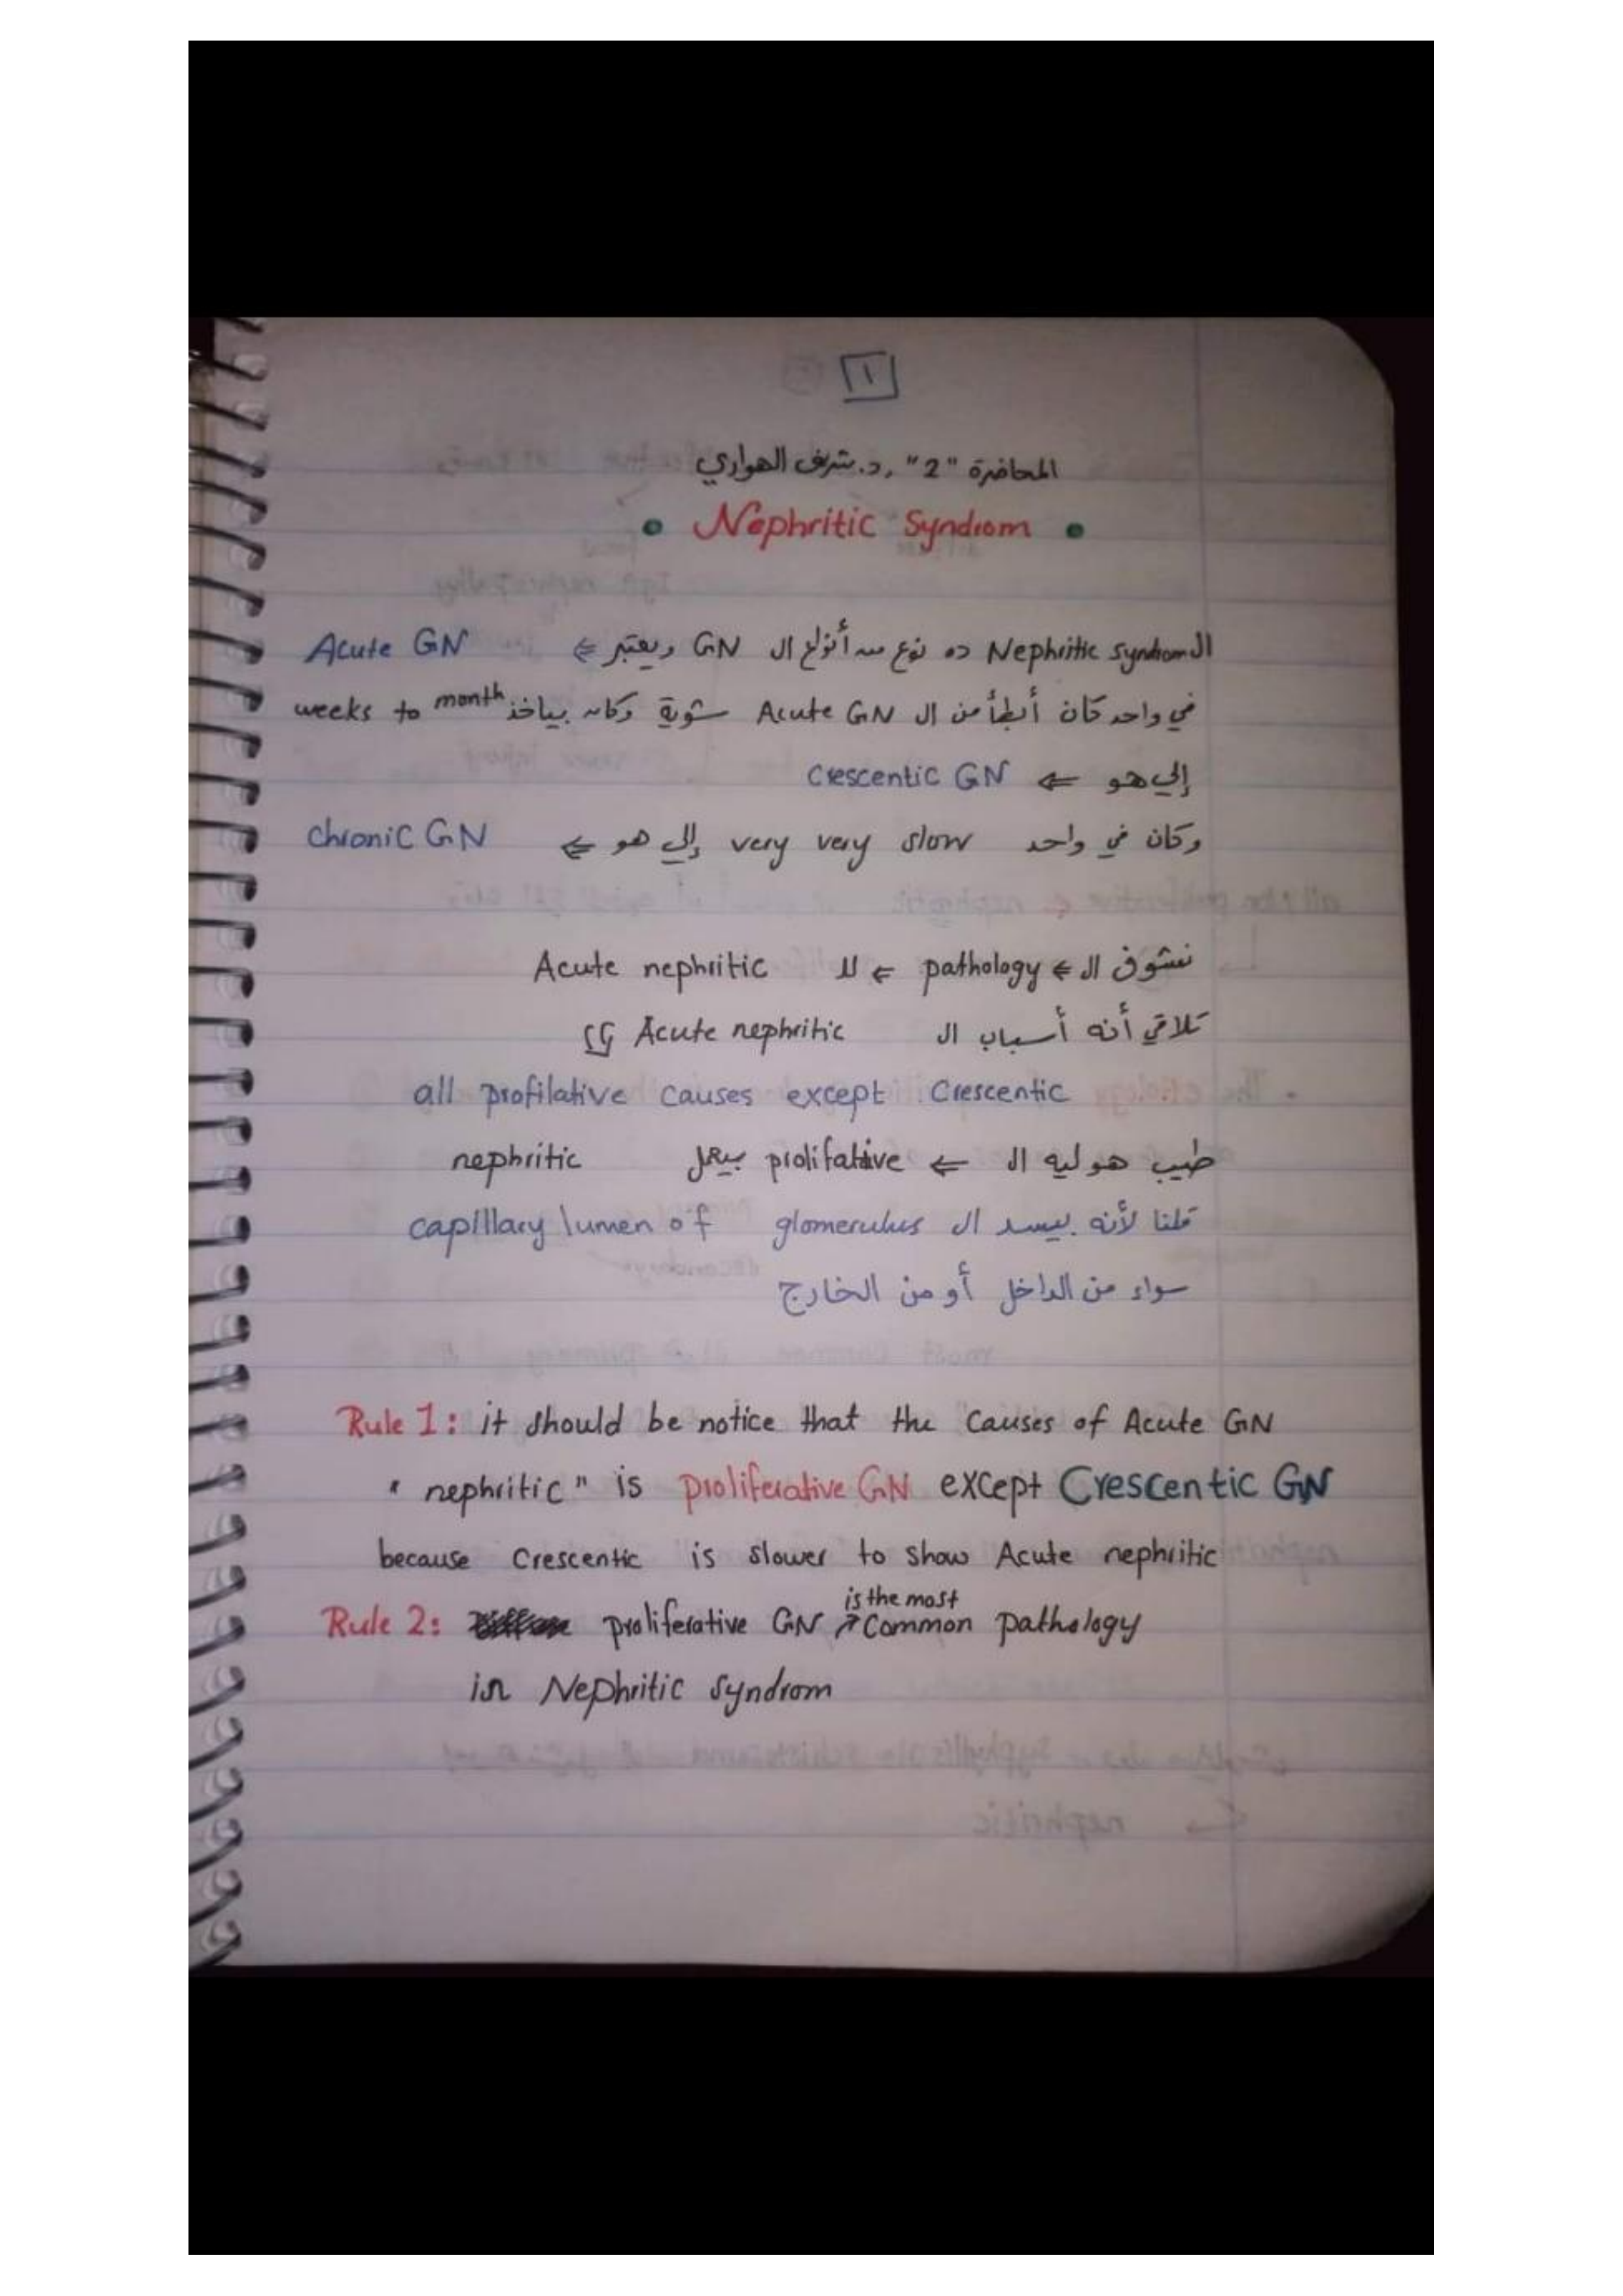 ١
المحاضرة "2" د. شريف الهواري
Nephritic Syndrom
ال Nephritic syndrom ده نوع من أنواع ال GN ويعتبر ⇐ Acute GN
في واحد كان أبطأ من ال Acute GN شوية وكان بياخذ weeks to month
إلي هو ⇐ Crescentic GN
وكان في واحد very very slow إلي هو ⇐ Chronic GN
نشوف ال ⇐ pathology ⇐ لل Acute nephritic
تلاقي أنه أسباب ال Acute nephritic
all profilative causes except Crescentic
طيب هو ليه ال ⇐ prolifative بيعمل nephritic
قلنا لأنه بيسد ال capillary lumen of glomerulus
سواء من الداخل أو من الخارج
Rule 1: it should be notice that the causes of Acute GN
"nephritic" is proliferative GN except Crescentic GN
because Crescentic is slower to show Acute nephritic
Rule 2: proliferative GN is the most common pathology
in Nephritic Syndrom